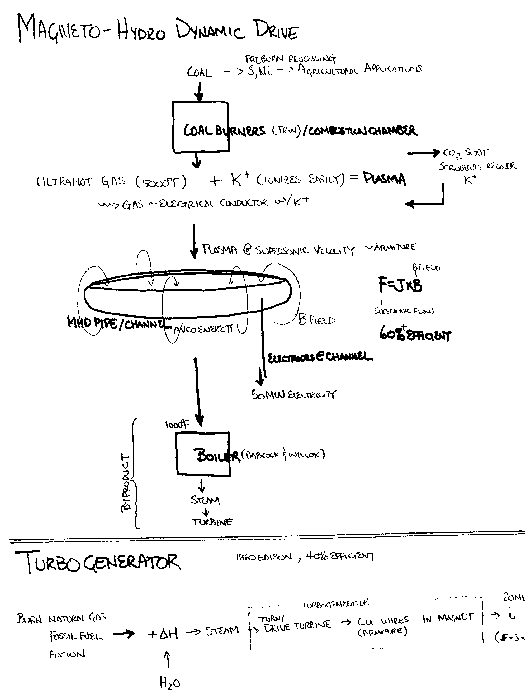 MAGNETO-HYDRO DYNAMIC DRIVE
PREBURN PROCESSING
COAL -> S, Ni -> AGRICULTURAL APPLICATIONS
COAL BURNERS (TRW)/COMBUSTION CHAMBER
ULTRAHOT GAS (5000°F) + K+ (IONIZES EASILY) = PLASMA
GAS ~ ELECTRICAL CONDUCTOR W/K+
CO2, SOOT
SCRUBBERS RECOVER
K+
PLASMA @ SUPERSONIC VELOCITY ~ARMATURE
B FIELD
F=JxB
60%+ EFFICIENT
MHD PIPE/CHANNEL
AVCO ENERGETI
B FIELD
ELECTRODES @ CHANNEL
50MW ELECTRICITY
1000°F
BOILER (BABCOCK & WILCOX)
BYPRODUCT
STEAM
TURBINE
TURBOGENERATOR
EDISON, 40% EFFICIENT
TURBOGENERATOR
BURN NATURAL GAS
FOSSIL FUEL
FISSION
+ΔH -> STEAM
TURN/
DRIVE TURBINE -> CU WIRES IN MAGNET
(ARMATURE)
i
H2O